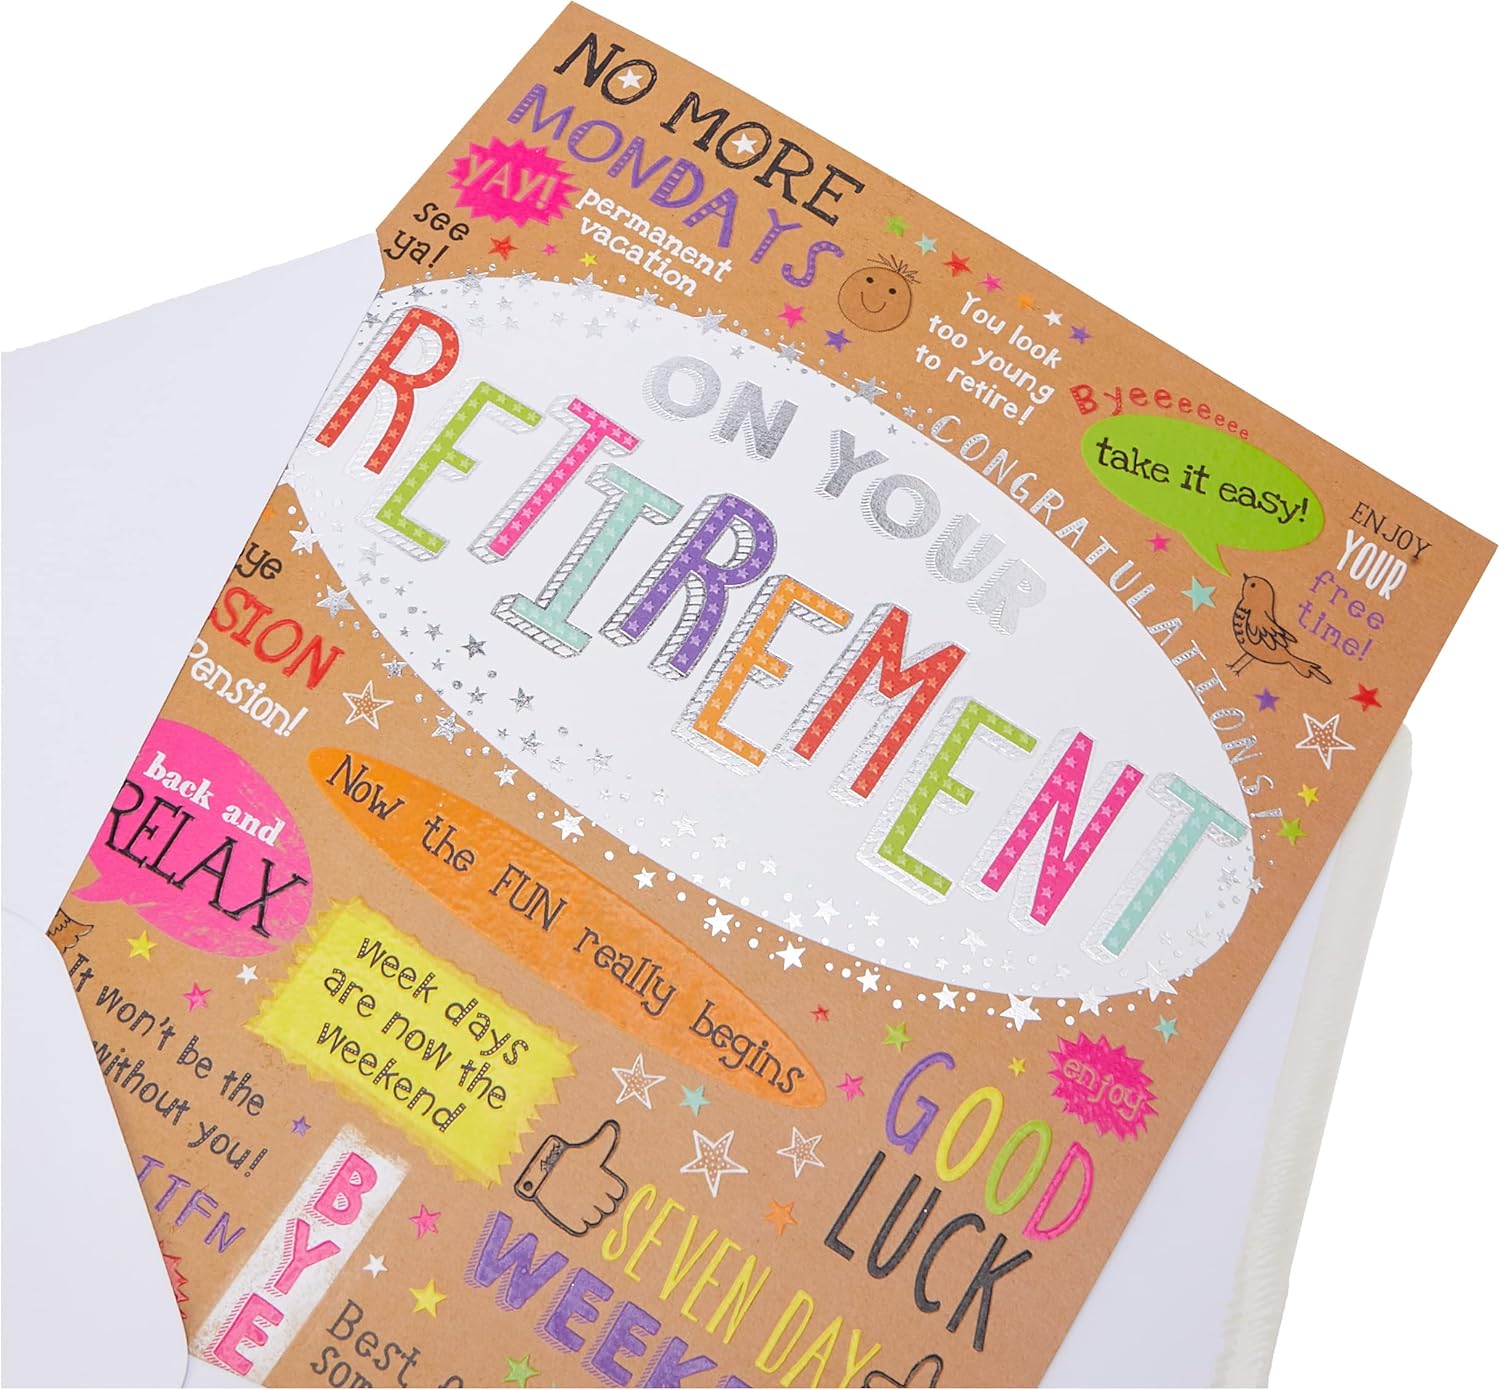 NO MORE
MONDAYS
YAY!
see
ya!
permanent
vacation
You look
too young
to retire!
Byeeeeeee
take it easy!
ENJOY
YOUR
free
time!
ON YOUR
RETIREMENT
CONGRATULATIONS!
ye
SION
Pension!
back and
RELAX
Now the FUN really begins
week days
are now the
weekend
It won't be the
without you!
TTFN
BYE
enjoy
GOOD
LUCK
SEVEN DAY
WEEK
Best
som